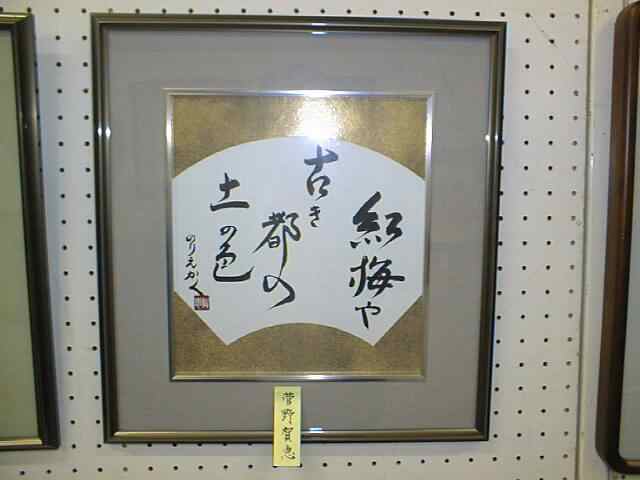 紅梅や
古き
都の
土の色
のりえかく
菅野賀恵